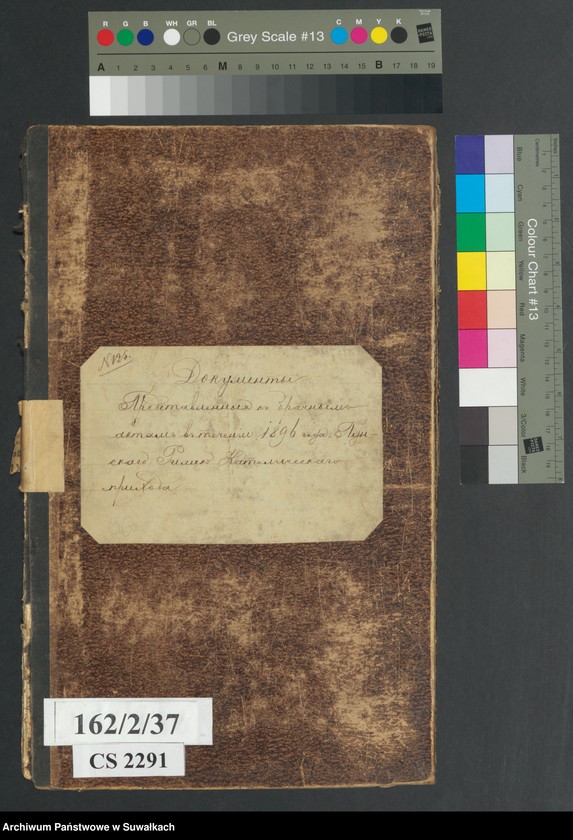 R G B WH GR BL Grey Scale #13 C M Y K
A 1 2 3 4 5 6 M 8 9 10 11 12 13 14 15 B 17 18 19
Colour Chart #13
Blue
Cyan
Green
Yellow
Red
Magenta
White
3/Color
Black
Centimetres
№ 126.
Документы
Представленныя къ брачнымъ
актамъ въ теченіи 1896 года
скаго Римско Католическаго
прихода
162/2/37
CS 2291
Archiwum Państwowe w Suwałkach